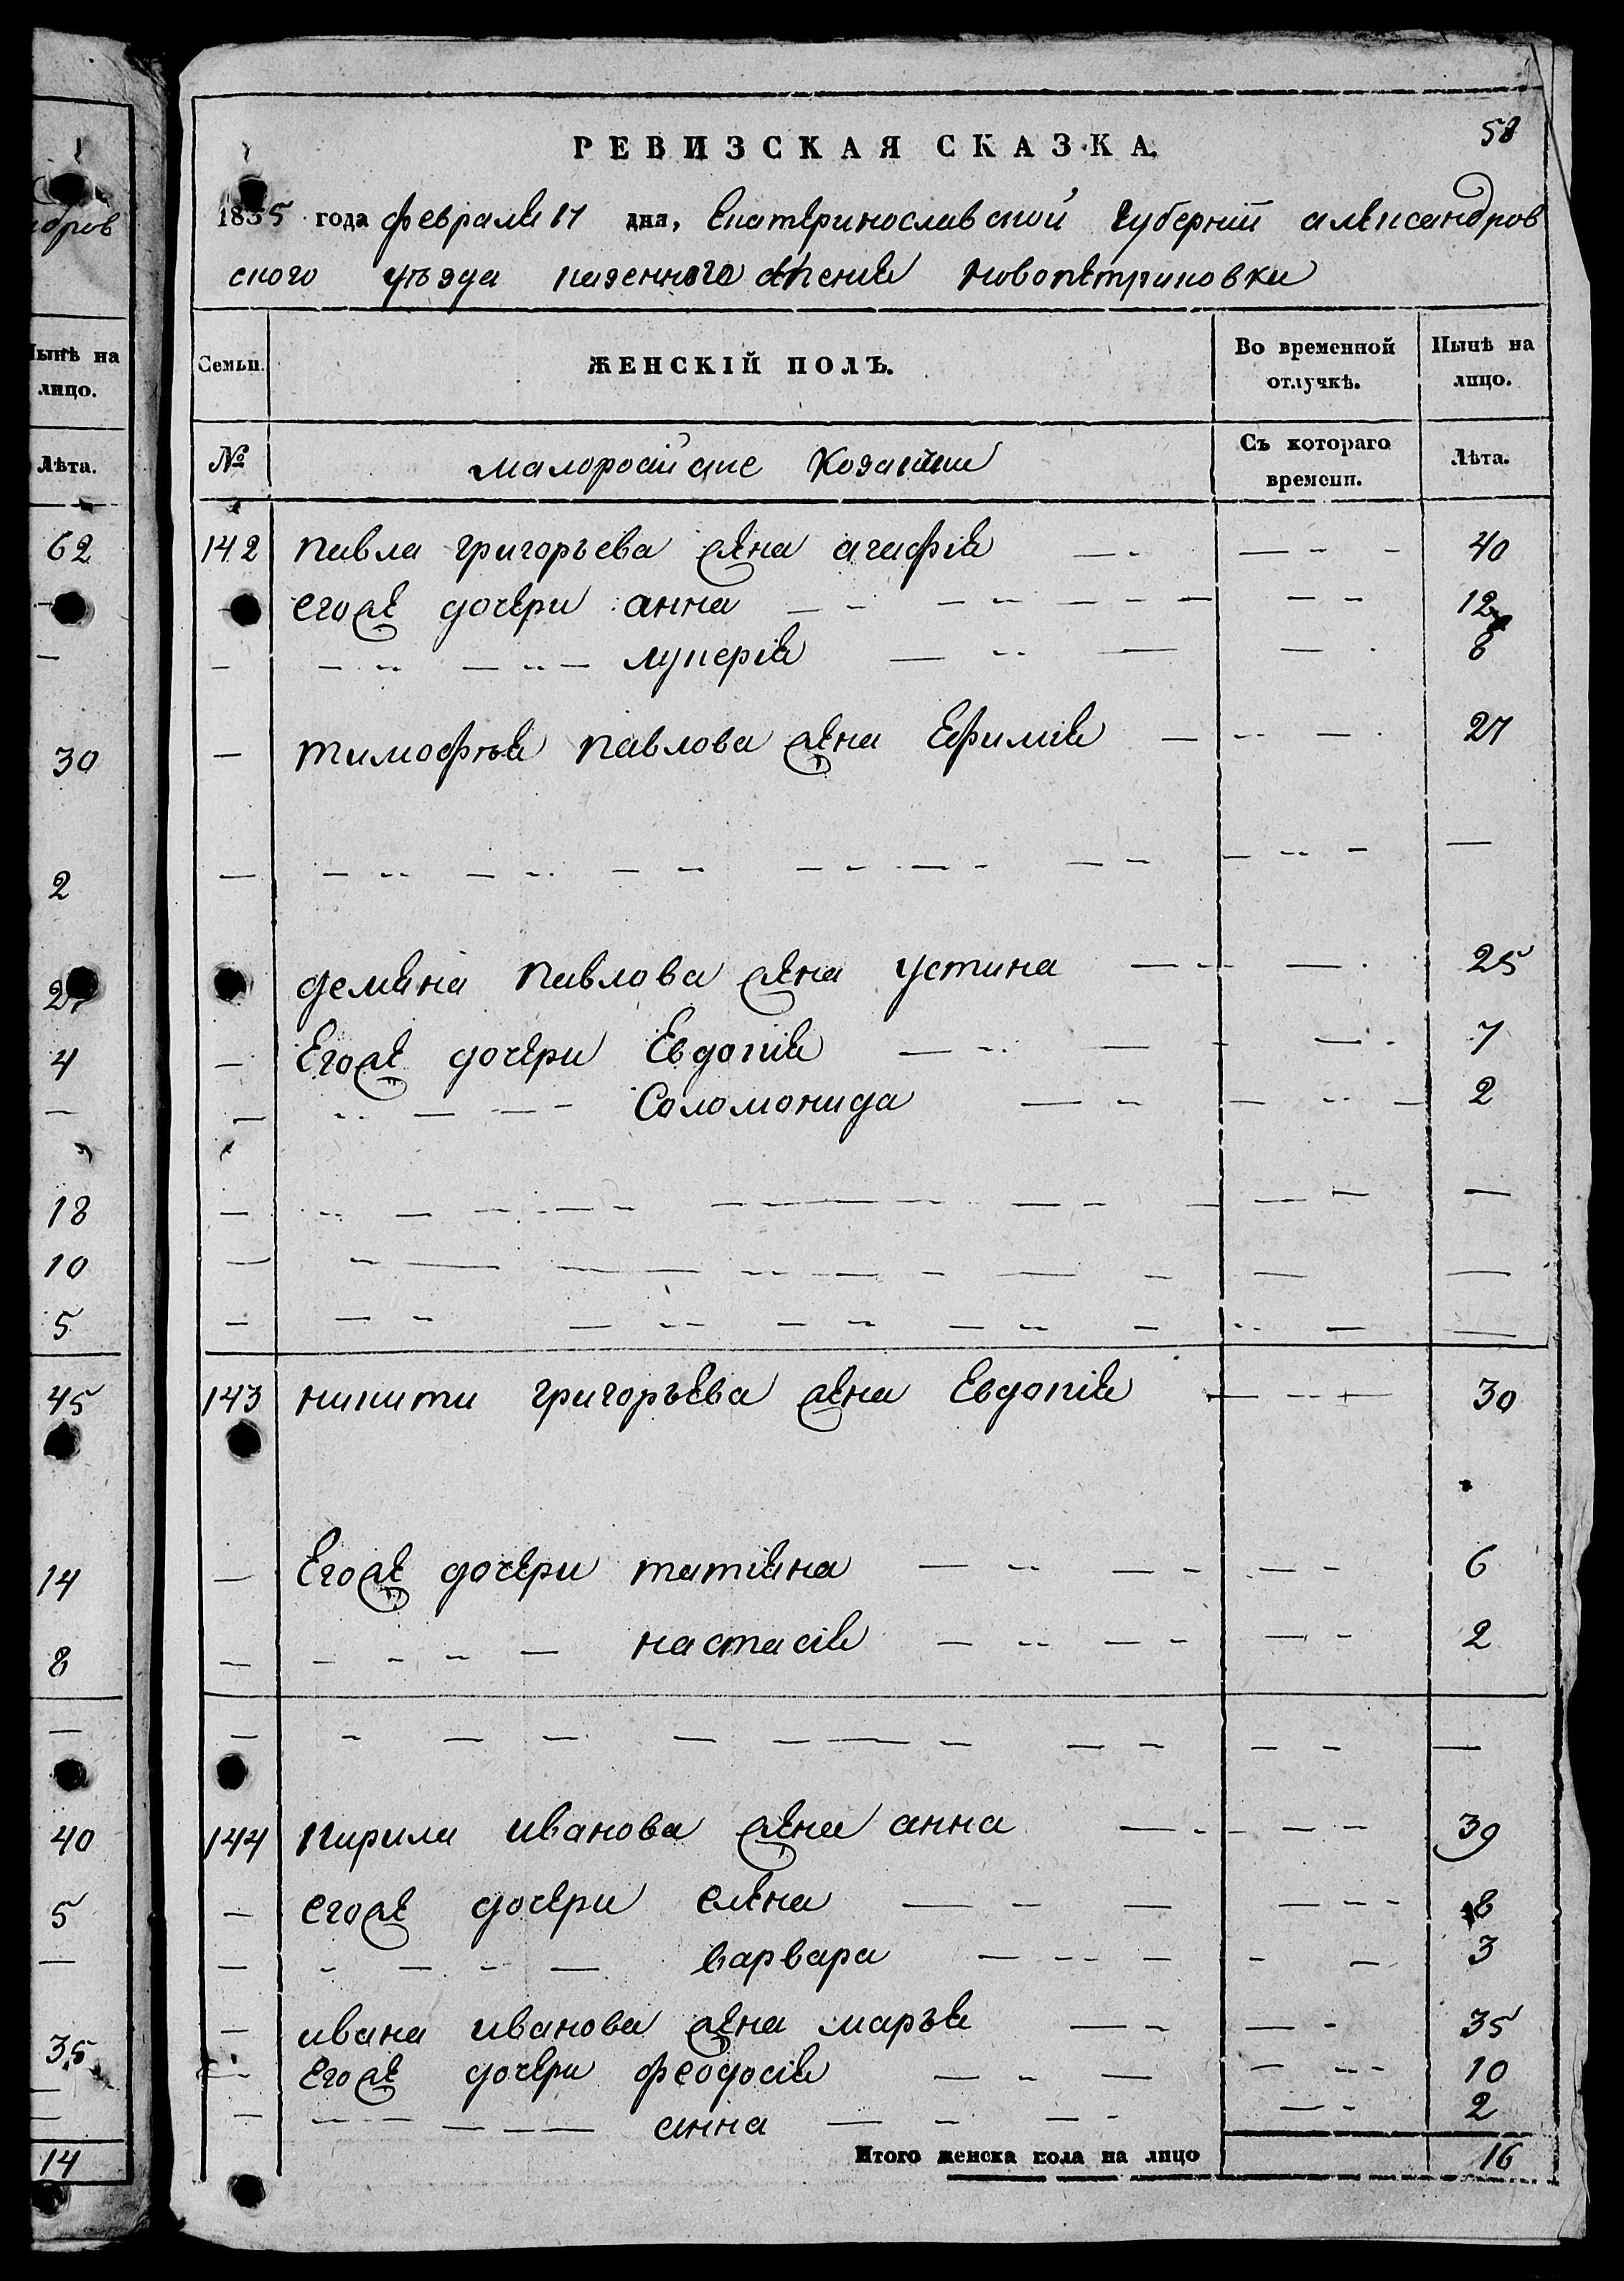 ндров
Нынѣ на
лицо.
Лѣта.
62
30
2
4
18
10
5
45
14
8
40
5
35
14
58
РЕВИЗСКАЯ СКАЗКА.
1835 года февраля 17 дня, Екатеринославской губерніи александров
ского уѣзда казенного селенія новопетриковки
Семьи. ЖЕНСКІЙ ПОЛЪ. Во временной отлучкѣ. Нынѣ на лицо.
№ малоросійские козачки Съ котораго времени. Лѣта.
142 павла григорьева жена агафія 40
егоже дочери анна 12
лукерія 8
тимофѣя павлова жена Ефимія 27
демяна павлова жена устина 25
Егоже дочери Евдокія 7
Соломонида 2
143 никити григорьева жена Евдокія 30
Егоже дочери татіяна 6
настасія 2
144 кирила иванова жена анна 39
егоже дочери елена 8
варвара 3
ивана иванова жена марья 35
Егоже дочери феодосія 10
анна 2
Итого женска пола на лицо 16